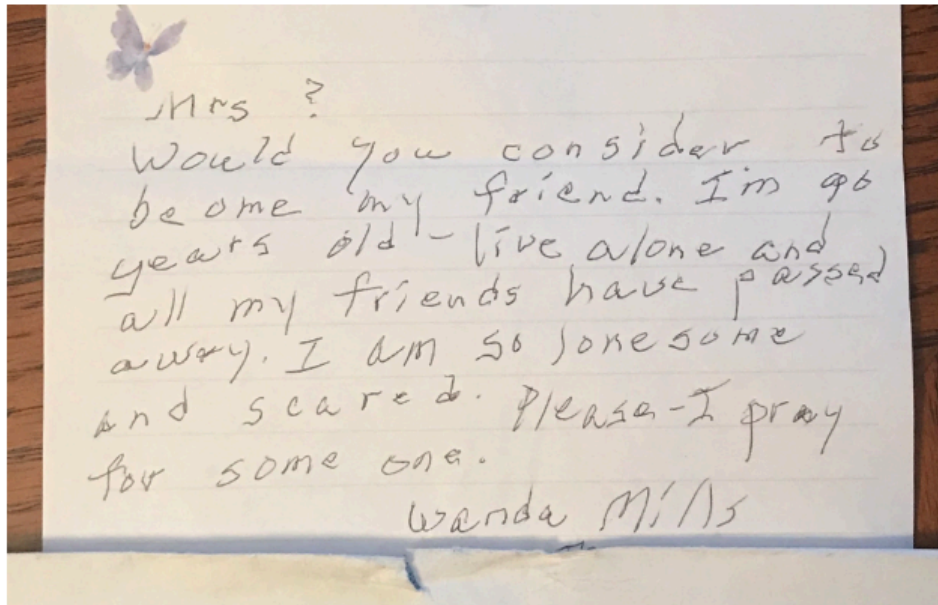 Mrs ?
Would you consider to
become my friend. I'm 90
years old - live alone and
all my friends have passed
away. I am so lonesome
and scared. Please - I pray
for some one.
Wanda Mills